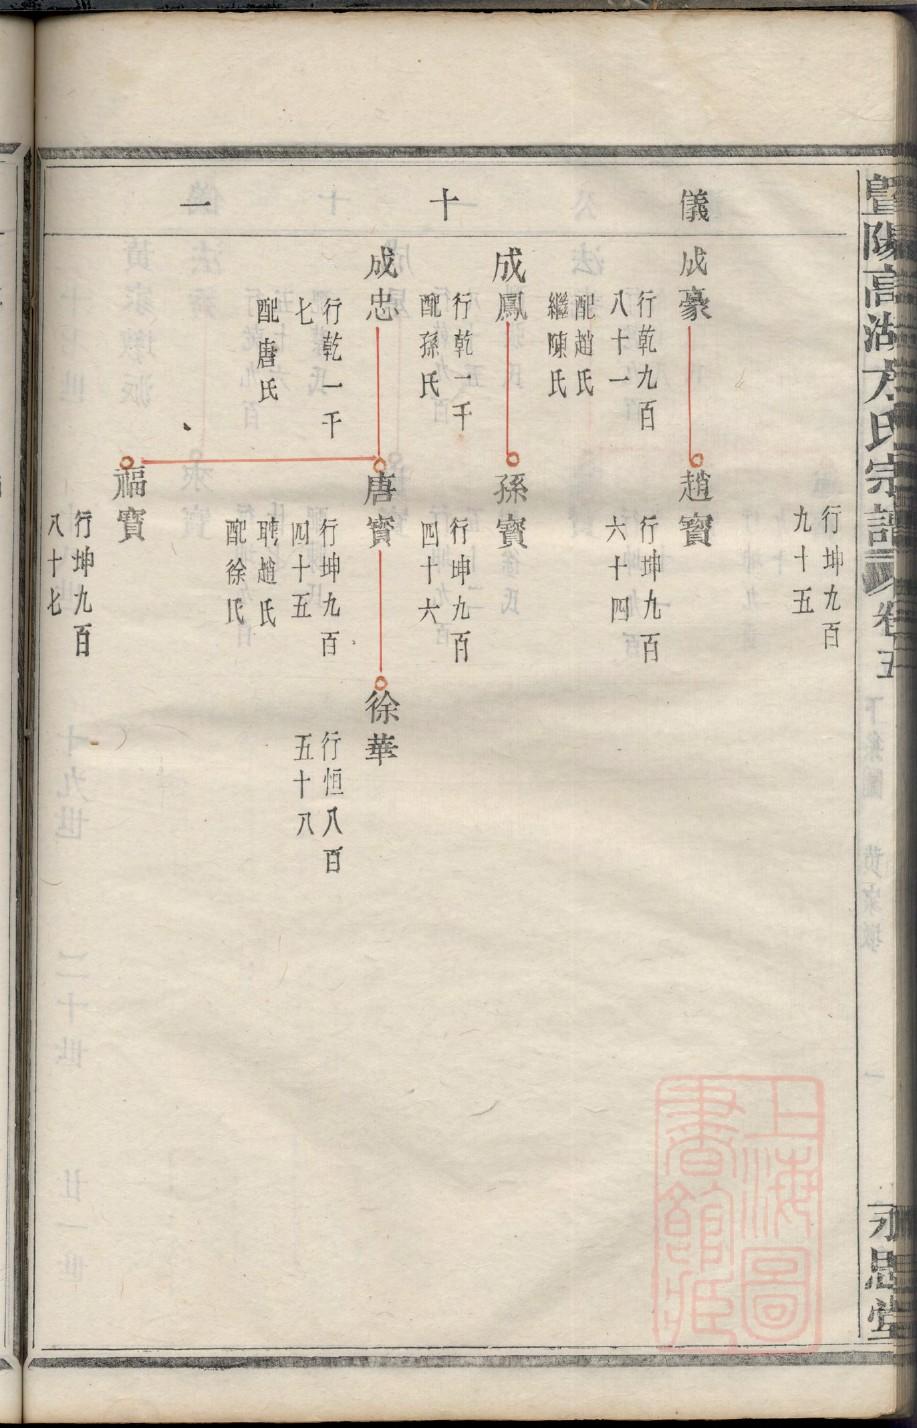 暨陽高湖方氏宗譜
卷五
下系圖
黃家墩
一
永思堂
儀
十
一
行坤九百
九十五
成豪
行乾九百
八十一
配趙氏
繼陳氏
趙寳
行坤九百
六十四
成鳳
行乾一千
配孫氏
孫寳
行坤九百
四十六
成忠
行乾一千
七
配唐氏
唐寳
行坤九百
四十五
聘趙氏
配徐氏
徐華
行恒八百
五十八
福寳
行坤九百
八十七
上海圖
書館藏